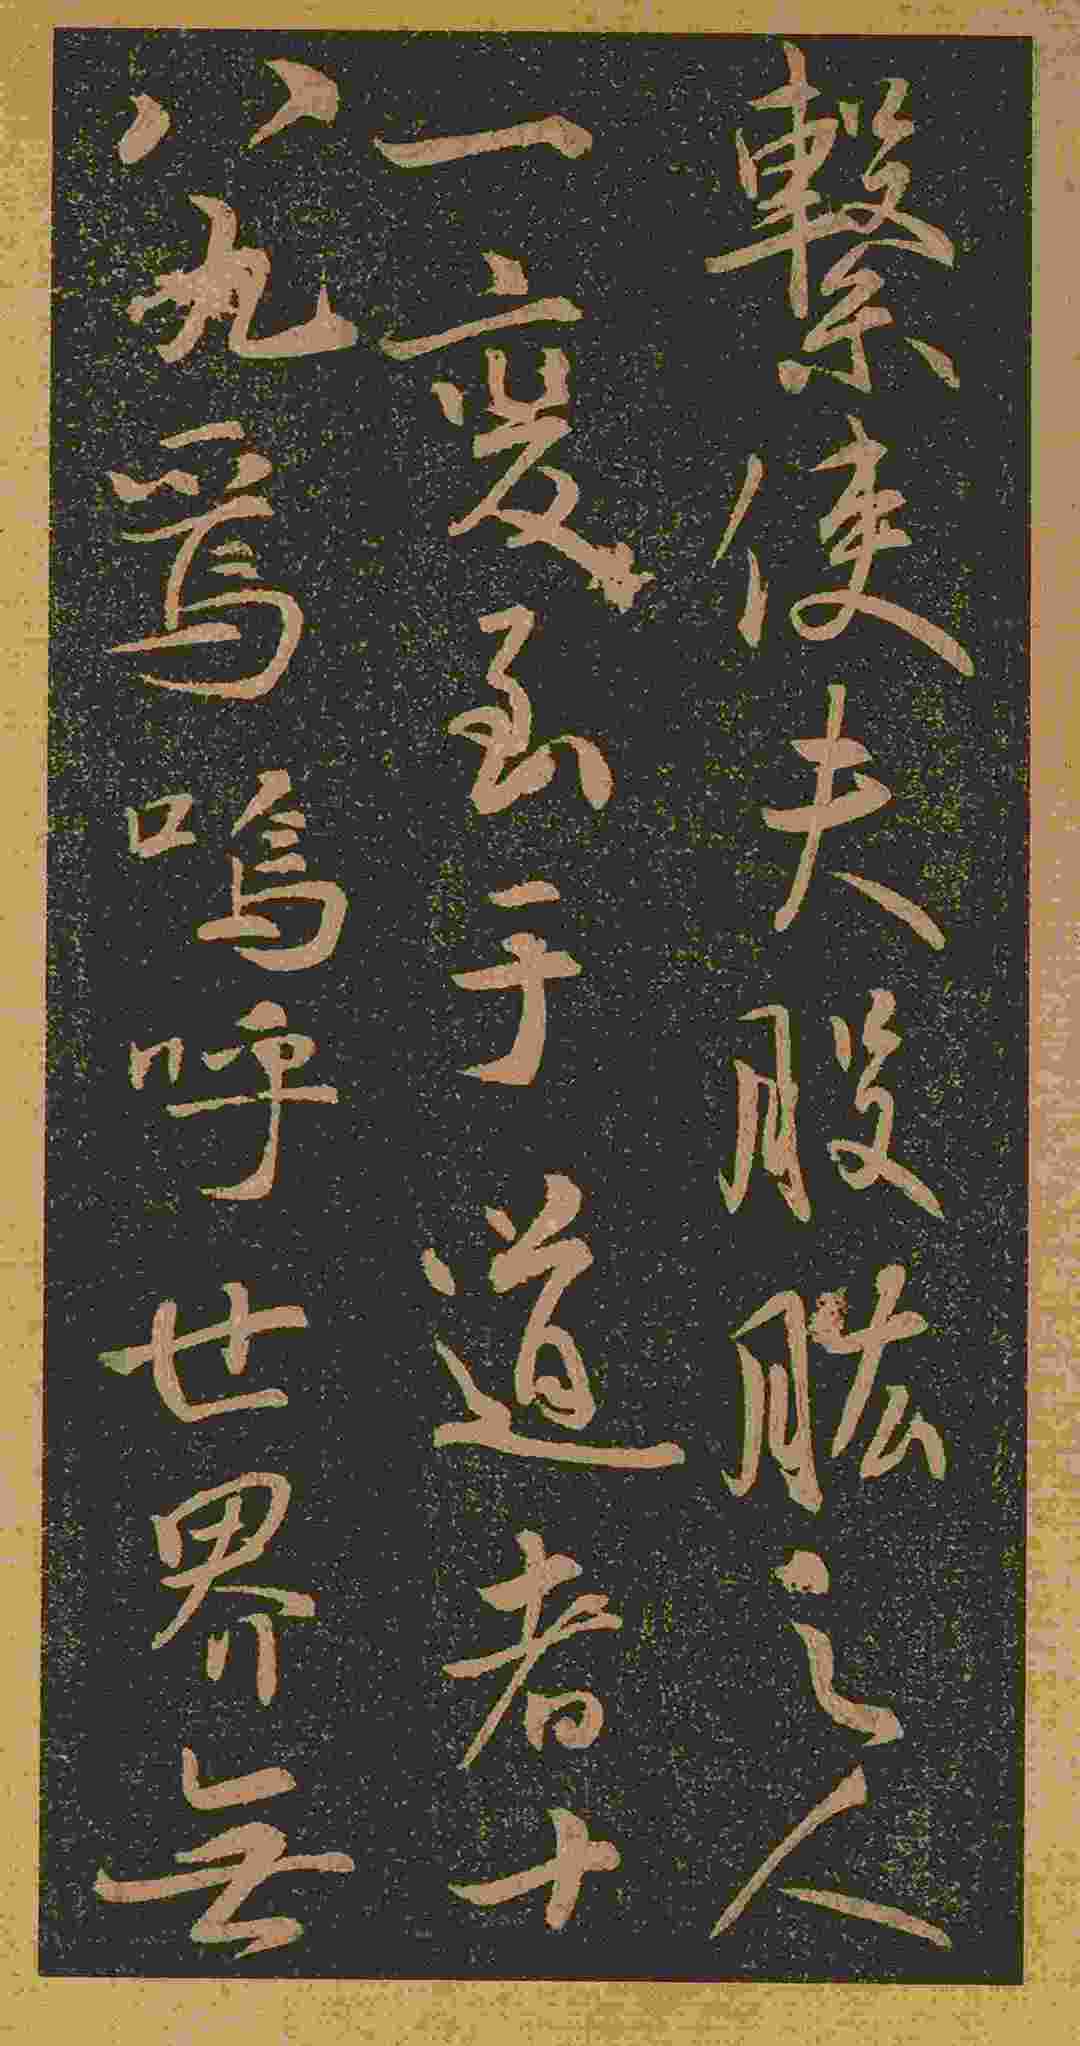 繫使夫股肱之人
一二變至于道者十
八九焉嗚呼世界無